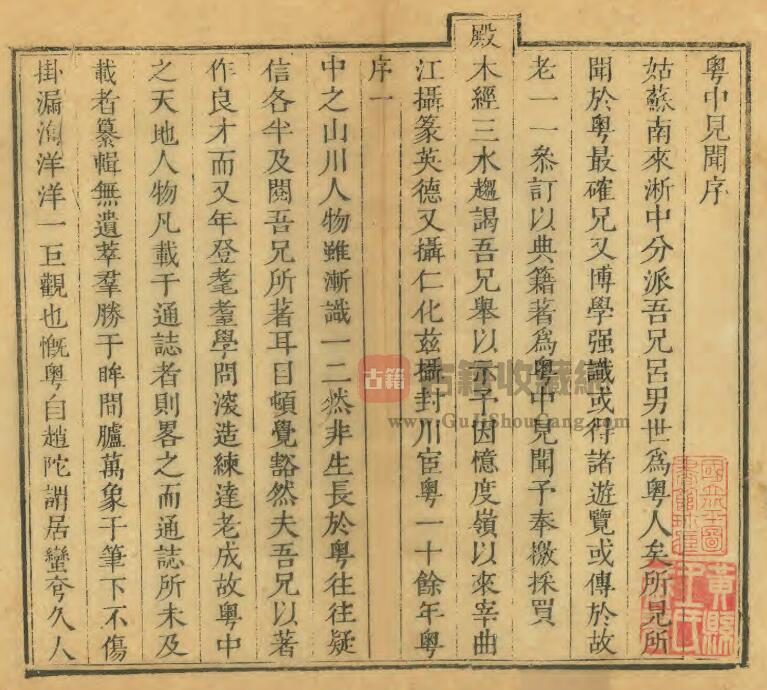 粤中見聞序
姑蘇南來淅中分派吾兄呂男世爲粤人矣所見所
聞於粤最確兄又博學强識或得諸遊覽或傳於故
老一一叅訂以典籍著爲粤中見聞予奉檄採買
殿
木經三水趨謁吾兄舉以示予因憶度嶺以來宰曲
江攝篆英德又攝仁化兹攝封川宦粤一十餘年粤
序一
中之山川人物雖漸識一二然非生長於粤往往疑
信各半及閱吾兄所著耳目頓覺豁然夫吾兄以著
作良才而又年登耄耋學問深造練達老成故粤中
之天地人物凡載于通誌者則畧之而通誌所未及
載者纂輯無遺萃羣勝于眸間臚萬象于筆下不傷
掛漏洵洋洋一巨觀也慨粤自趙陀謂居蠻夸久人
古籍
古籍收藏
www.GuJiShouCang.com